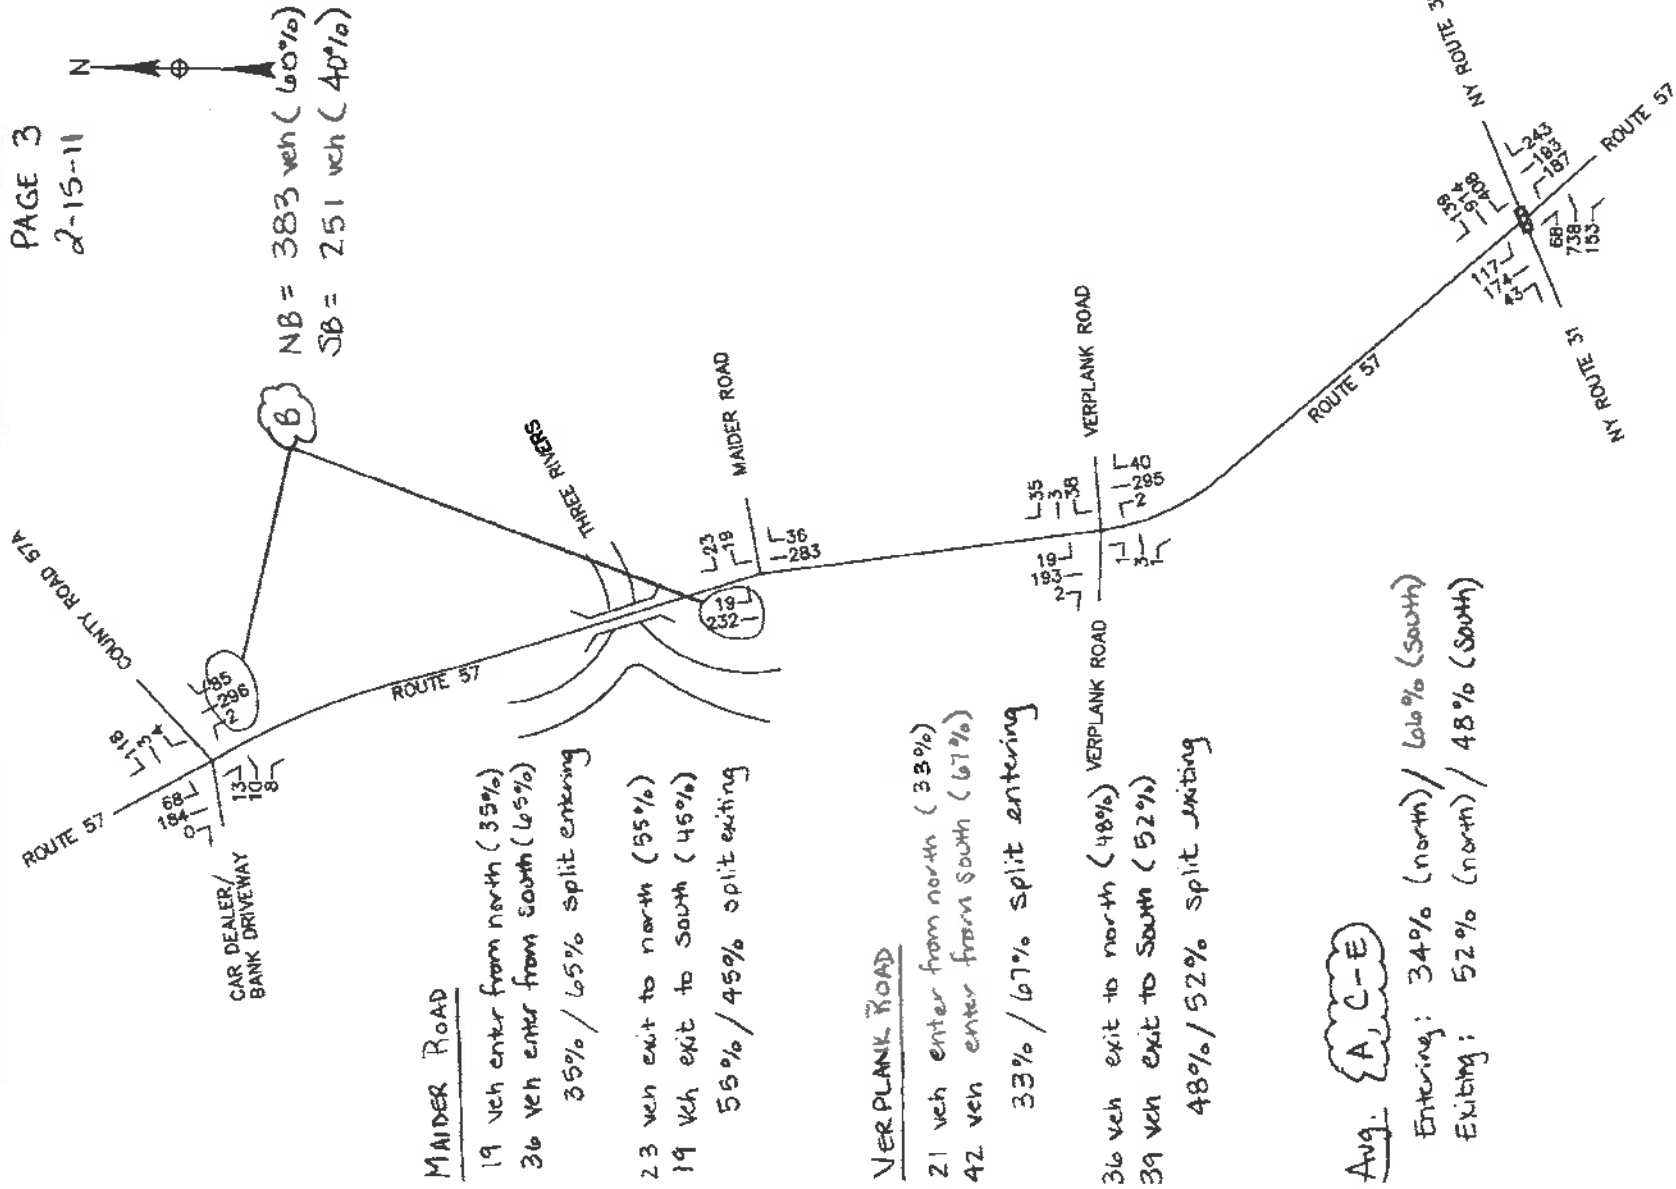 PAGE 3
2-15-11
N
NB = 383 veh (60%)
SB = 251 veh (40%)
B
COUNTY ROAD 57A
ROUTE 57
CAR DEALER/
BANK DRIVEWAY
118
3
4
85
296
2
68
184
0
13
10
8
ROUTE 57
THREE RIVERS
MAIDER ROAD
23
19
36
283
19
232
VERPLANK ROAD
35
3
38
40
295
2
19
193
2
1
3
1
VERPLANK ROAD
ROUTE 57
NY ROUTE 3
139
914
408
243
193
187
117
174
43
68
738
153
ROUTE 57
NY ROUTE 31
MAIDER ROAD
19 veh enter from north (35%)
36 veh enter from south (65%)
35% / 65% split entering
23 veh exit to north (55%)
19 veh exit to south (45%)
55% / 45% split exiting
VERPLANK ROAD
21 veh enter from north (33%)
42 veh enter from south (67%)
33% / 67% split entering
36 veh exit to north (48%)
39 veh exit to south (52%)
48% / 52% split exiting
Avg. A, C-E
Entering: 34% (north) / 66% (south)
Exiting: 52% (north) / 48% (south)